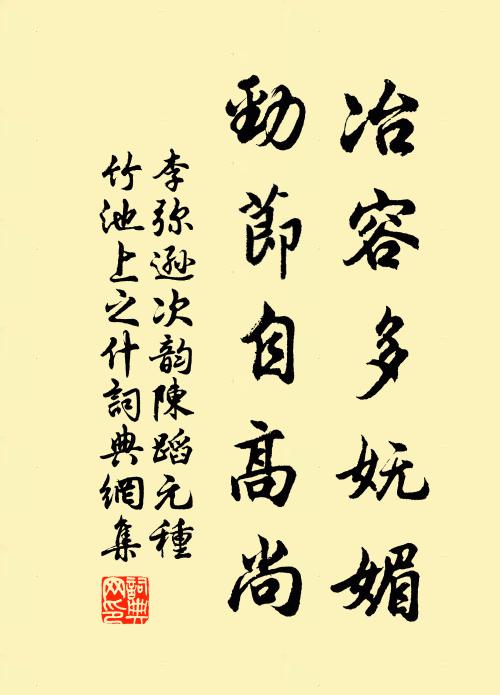 冶容多妩媚
勁節自高尚
李弥遜次韵陳蹈元種
竹池上之什詞典網集
詞典网印